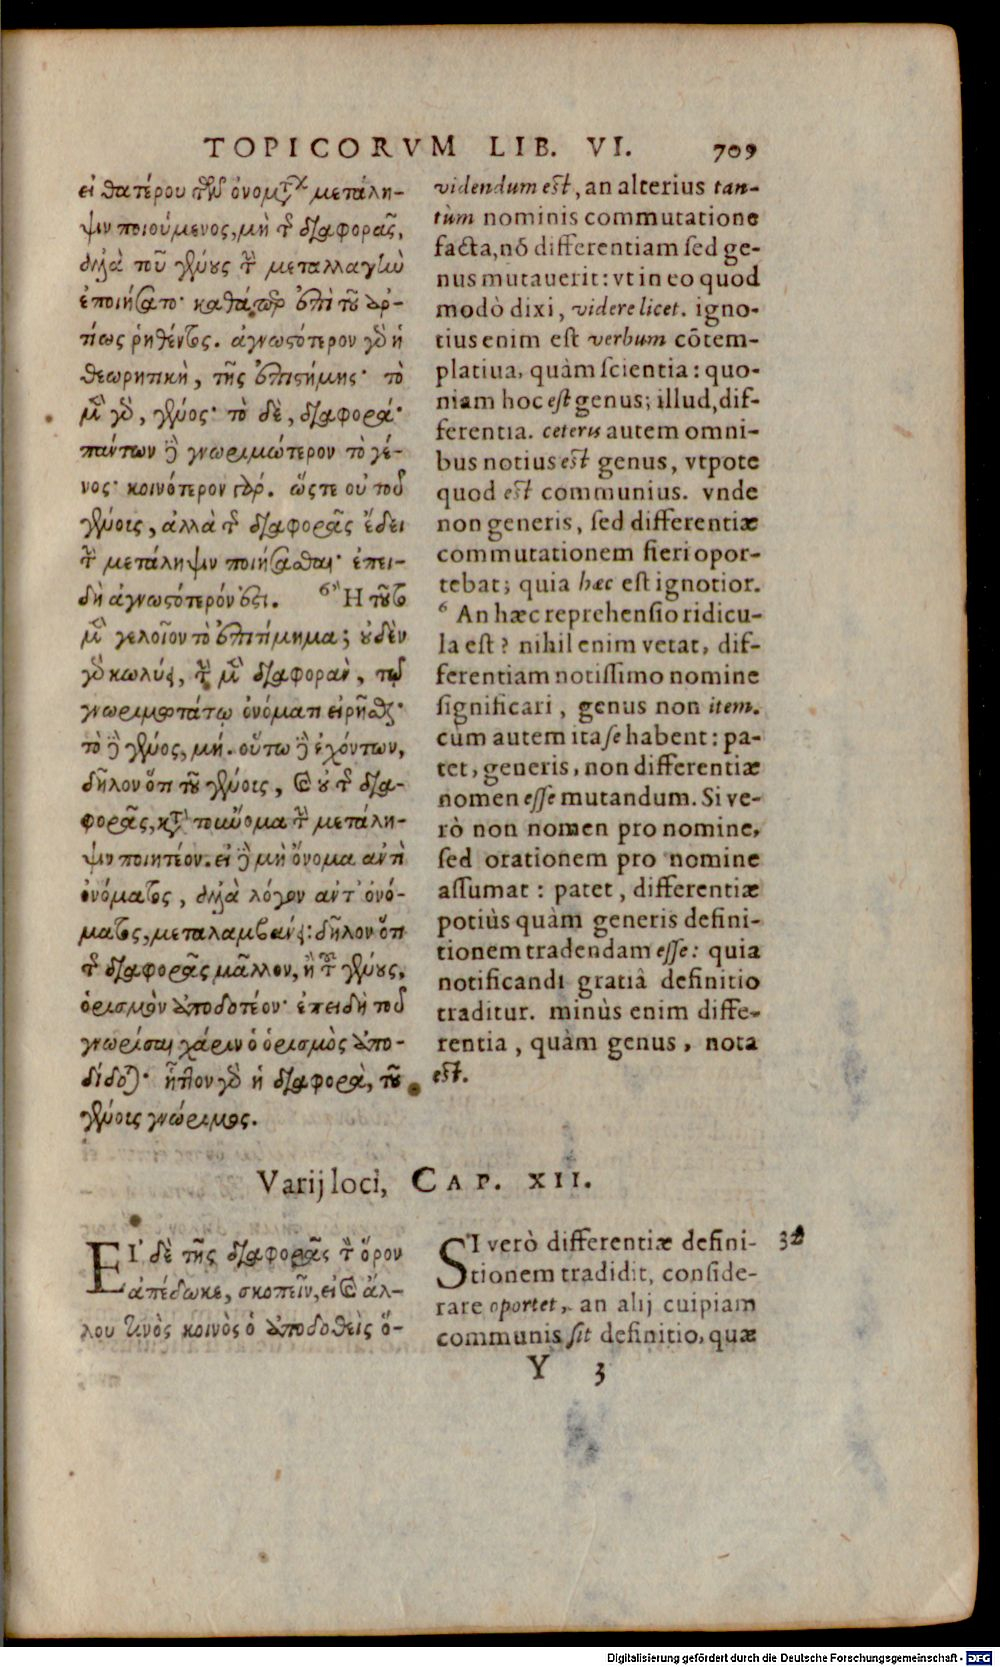 TOPICORVM LIB. VI. 709
εἰ θατέρου τῶν ὀνομάτων μετάλη-
ψιν ποιούμενος, μὴ τῆς διαφορᾶς,
ἀλλὰ τοῦ γένους τὴν μεταλλαγὴν
ἐποιήσατο· καθάπερ ἐπὶ τοῦ ἀρ-
τίως ῥηθέντος. ἀγνωστότερον γὰρ ἡ
θεωρητικὴ, τῆς ἐπιστήμης· τὸ
μὲν γὰρ, γένος· τὸ δὲ, διαφορά·
πάντων δὲ γνωριμώτερον τὸ γέ-
νος· κοινότερον γάρ. ὥςτε οὐ τοῦ
γένοις, ἀλλὰ τῆς διαφορᾶς ἔδει
τὴν μετάληψιν ποιήσασθαι· ἐπει-
δὴ ἀγνωστότερόν ἐστι. 6 Ἢ τοῦτο
μὲν γελοῖον τὸ ἐπιτίμημα; οὐδὲν
γὰρ κωλύει, τὴν μὲν διαφορὰν, τῷ
γνωριμωτάτῳ ὀνόματι εἰρῆσθαι·
τὸ δὲ γένος, μή. οὕτω δὲ ἐχόντων,
δῆλον ὅτι τοῦ γένοις, καὶ οὐ τῆς δια-
φορᾶς, κατὰ τοὔνομα τὴν μετάλη-
ψιν ποιητέον. εἰ δὲ μὴ ὄνομα ἀντὶ
ὀνόματος, ἀλλὰ λόγον ἀντ' ὀνό-
ματος, μεταλαμβάνει: δῆλον ὅτι
τῆς διαφορᾶς μᾶλλον, ἢ τοῦ γένους,
ὁρισμὸν ἀποδοτέον· ἐπειδὴ τοῦ
γνωρίσαι χάριν ὁ ὁρισμὸς ἀπο-
δίδοται· ἧττον γὰρ ἡ διαφορὰ, τοῦ
γένοις γνώριμος.
videndum est, an alterius tan-
tùm nominis commutatione
facta, nō differentiam sed ge-
nus mutauerit: vt in eo quod
modò dixi, videre licet. igno-
tius enim est verbum cōtem-
platiua, quàm scientia: quo-
niam hoc est genus; illud, dif-
ferentia. ceteris autem omni-
bus notius est genus, vtpote
quod est communius. vnde
non generis, sed differentiæ
commutationem fieri opor-
tebat; quia hæc est ignotior.
6 An hæc reprehensio ridicu-
la est? nihil enim vetat, dif-
ferentiam notissimo nomine
significari, genus non item.
cùm autem ita se habent: pa-
tet, generis, non differentiæ
nomen esse mutandum. Si ve-
rò non nomen pro nomine,
sed orationem pro nomine
assumat: patet, differentiæ
potiùs quàm generis defini-
tionem tradendam esse: quia
notificandi gratiâ definitio
traditur. minùs enim diffe-
rentia, quàm genus, nota
est.
Varij loci, CAP. XII.
ΕΙ' δὲ τῆς διαφορᾶς τὸν ὅρον
ἀπέδωκε, σκοπεῖν, εἰ καὶ ἄλ-
λου τινὸς κοινὸς ὁ ἀποδοθεὶς ὅ-
SI verò differentiæ defini-
tionem tradidit, conside-
rare oportet, an alij cuipiam
communis sit definitio, quæ
Y 3
Digitalisierung gefördert durch die Deutsche Forschungsgemeinschaft - DFG